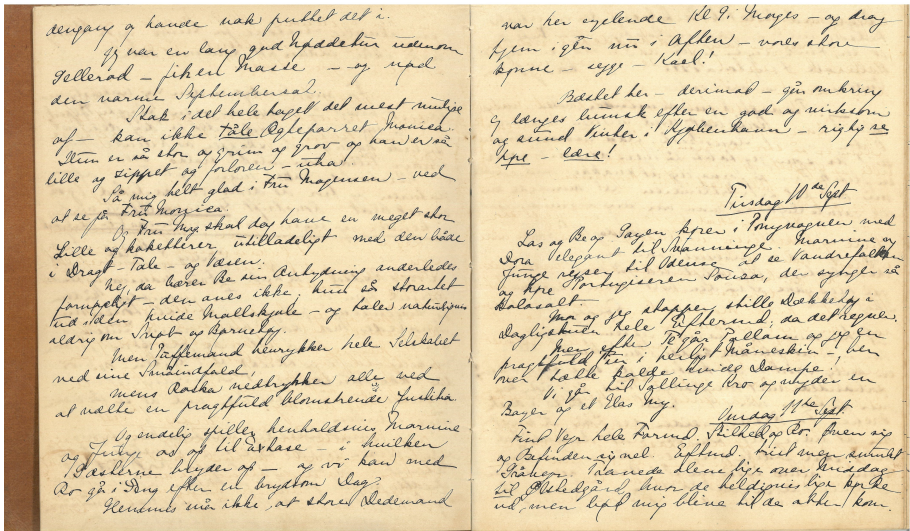 dengang og havde nok puttet det i.
Jeg var en lang god Nøddetur udenom
Gellerød – fik en Masse – og nød
den varme Septembersol.
Skak i det hele taget det mest mulige
af – kan ikke tåle Ægteparret Monica.
Hun er så stor og grim og grov og han er så
lille og sippet og forloren – uha
Så mig helt glad i Fru Mogensen – ved
at se på Fru Monica.
Og Fru Mog. skal dog have en meget stor
Lille og koketterer utilladeligt med den både
i Dragt – Tale – og Væsen.
Nej, da bærer Be sin Antydning anderledes
fornøjeligt – den anes ikke, hun så storartet
ud i den hvide Molskjole – og taler naturligvis
aldrig om Svøb og Barnetøj.
Men Jaffemand henrykker hele Selskabet
ved sine Småindfald,
mens Raska nedtrykker alle ved
at vælte en pragtfuld blomstrende
Og endelig spiller henholdsvis Marmine
og Junge os op til Extase – i hvilken
Gæsterne bryder op – og vi kan med
Ro gå i Seng efter en brydsom Dag.
Glemmes må ikke, at store Dedemand
var her cyclende Kl 9 i Morges – og drog
hjem igen nu i Aften – vores store
kønne – sygge – Kael!
Bæstet her – derimod – går omkring
og længes lumsk efter en god og virksom
og sund Vinter i Kjøbenhavn – rigtig se
høre – lære!
Tirsdag 10de Sept
Las og Be og Gayen kører i Ponyvognen med
Dora elegant til Svanninge. Marmine og
Junge rejser til Odense at se Vandrefalken
og høre Portugiseren Souza, der synger så
kolosalt.
Mor og jeg stopper stille Dækketøj i
Dagligstuen hele Efterm., da det regner.
Men efter Te går Tallam og jeg en
pragtfuld Tur i herligt Måneskin – hen
over tætte kolde hvide Dampe!
Vi går til Sollinge Kro og nyder en
Bajer og et Glas My.
Onsdag 11te Sept.
Fint Vejr hele Formd. Stilhed og Ro. Øven sig
og Befinden sig vel. Eftmd. fint men smult
Gråvejr. Tranede alene lige over Middag
til Østedgård, hvor de heldigvis lige
ud, men bad mig blive til de atter kom.